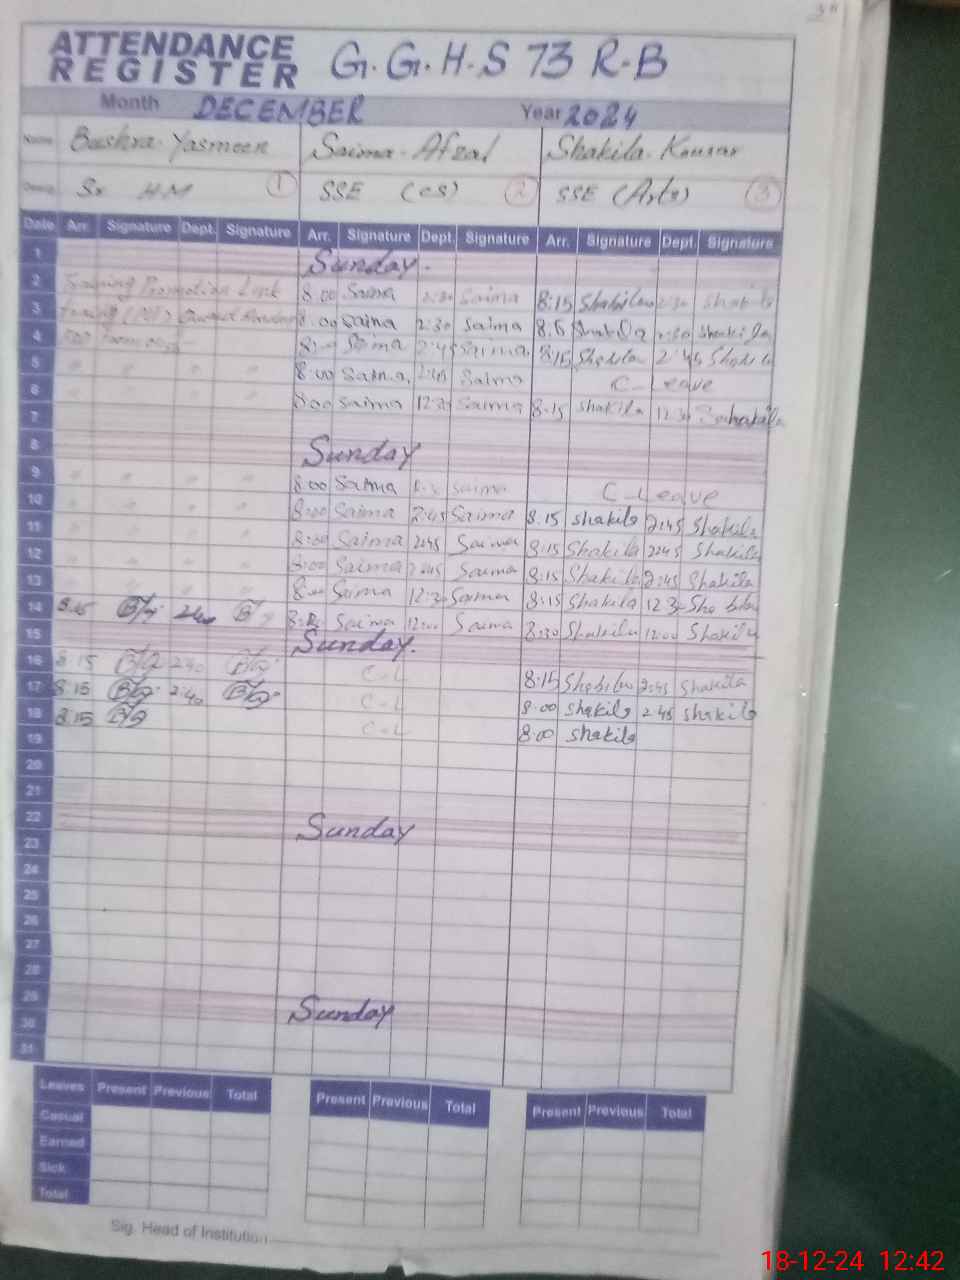 ATTENDANCE REGISTER G.G.H.S 73 R-B
Month DECEMBER Year 2024
Name Bushra Yasmeen Saima Afzal Shakila Kausar
Desig. Sr HM 1 SSE (CS) 2 SSE (Arts) 3
Date Arr. Signature Dept. Signature Arr. Signature Dept. Signature Arr. Signature Dept. Signature
1 Sunday.
2 Training Promotion Link 8:00 Saima 2:30 Saima 8:15 Shakila 2:30 Shakila
3 Saima 2:30 Saima Shakila 2:30 Shakila
4 Saima 2:45 Saima 8:15 Shakila 2:45 Shakila
5 " " " " 8:00 Saima 2:45 Saima C-Leave
6 " " " " 8:00 Saima 12:30 Saima 8:15 Shakila 12:30 Shakila
7
8 Sunday
9 " " " " 8:00 Saima Saima C-Leave
10 " " " " 8:00 Saima 2:45 Saima 8:15 Shakila 2:45 Shakila
11 " " " " 8:00 Saima 2:45 Saima 8:15 Shakila 2:45 Shakila
12 " " " " 8:00 Saima 2:45 Saima 8:15 Shakila 2:45 Shakila
13 " " " " 8:00 Saima 12:30 Saima 8:15 Shakila 12:30 Shakila
14 Saima 12:00 Saima 8:30 Shakila 12:00 Shakila
15 Sunday.
16 8:15 2:40 C-L 8:15 Shakila 2:45 Shakila
17 8:15 2:40 C-L 8:00 Shakila 2:45 Shakila
18 8:15 C-L 8:00 Shakila
19
20
21
22 Sunday
23
24
25
26
27
28
29 Sunday
30
31
Leaves Present Previous Total Present Previous Total Present Previous Total
Casual
Earned
Sick
Total
Sig. Head of Institution
18-12-24 12:42